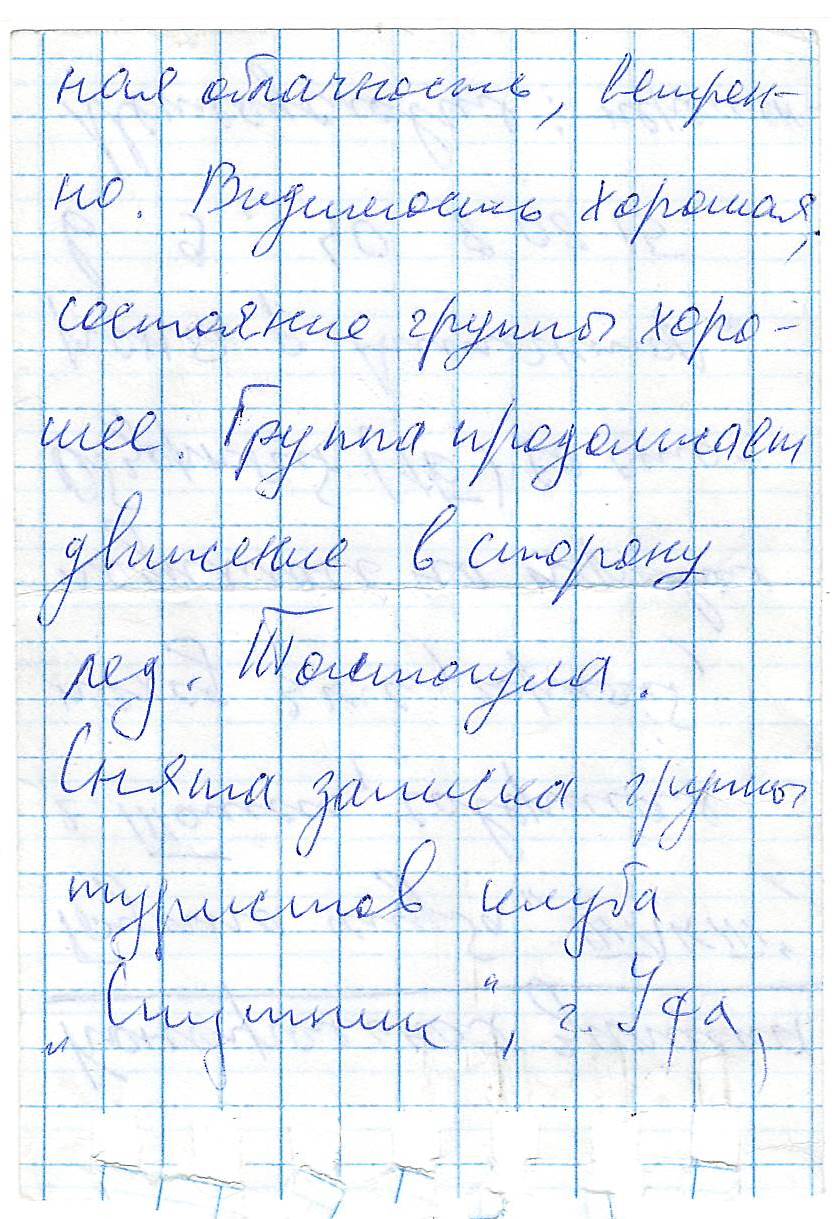 ная облачность, ветрен-
но. Видимость хорошая,
состояние группы хоро-
шее. Группа продолжает
движение в сторону
лед.
Снята записка группы
туристов клуба
„Спутник“, г. Уфа,